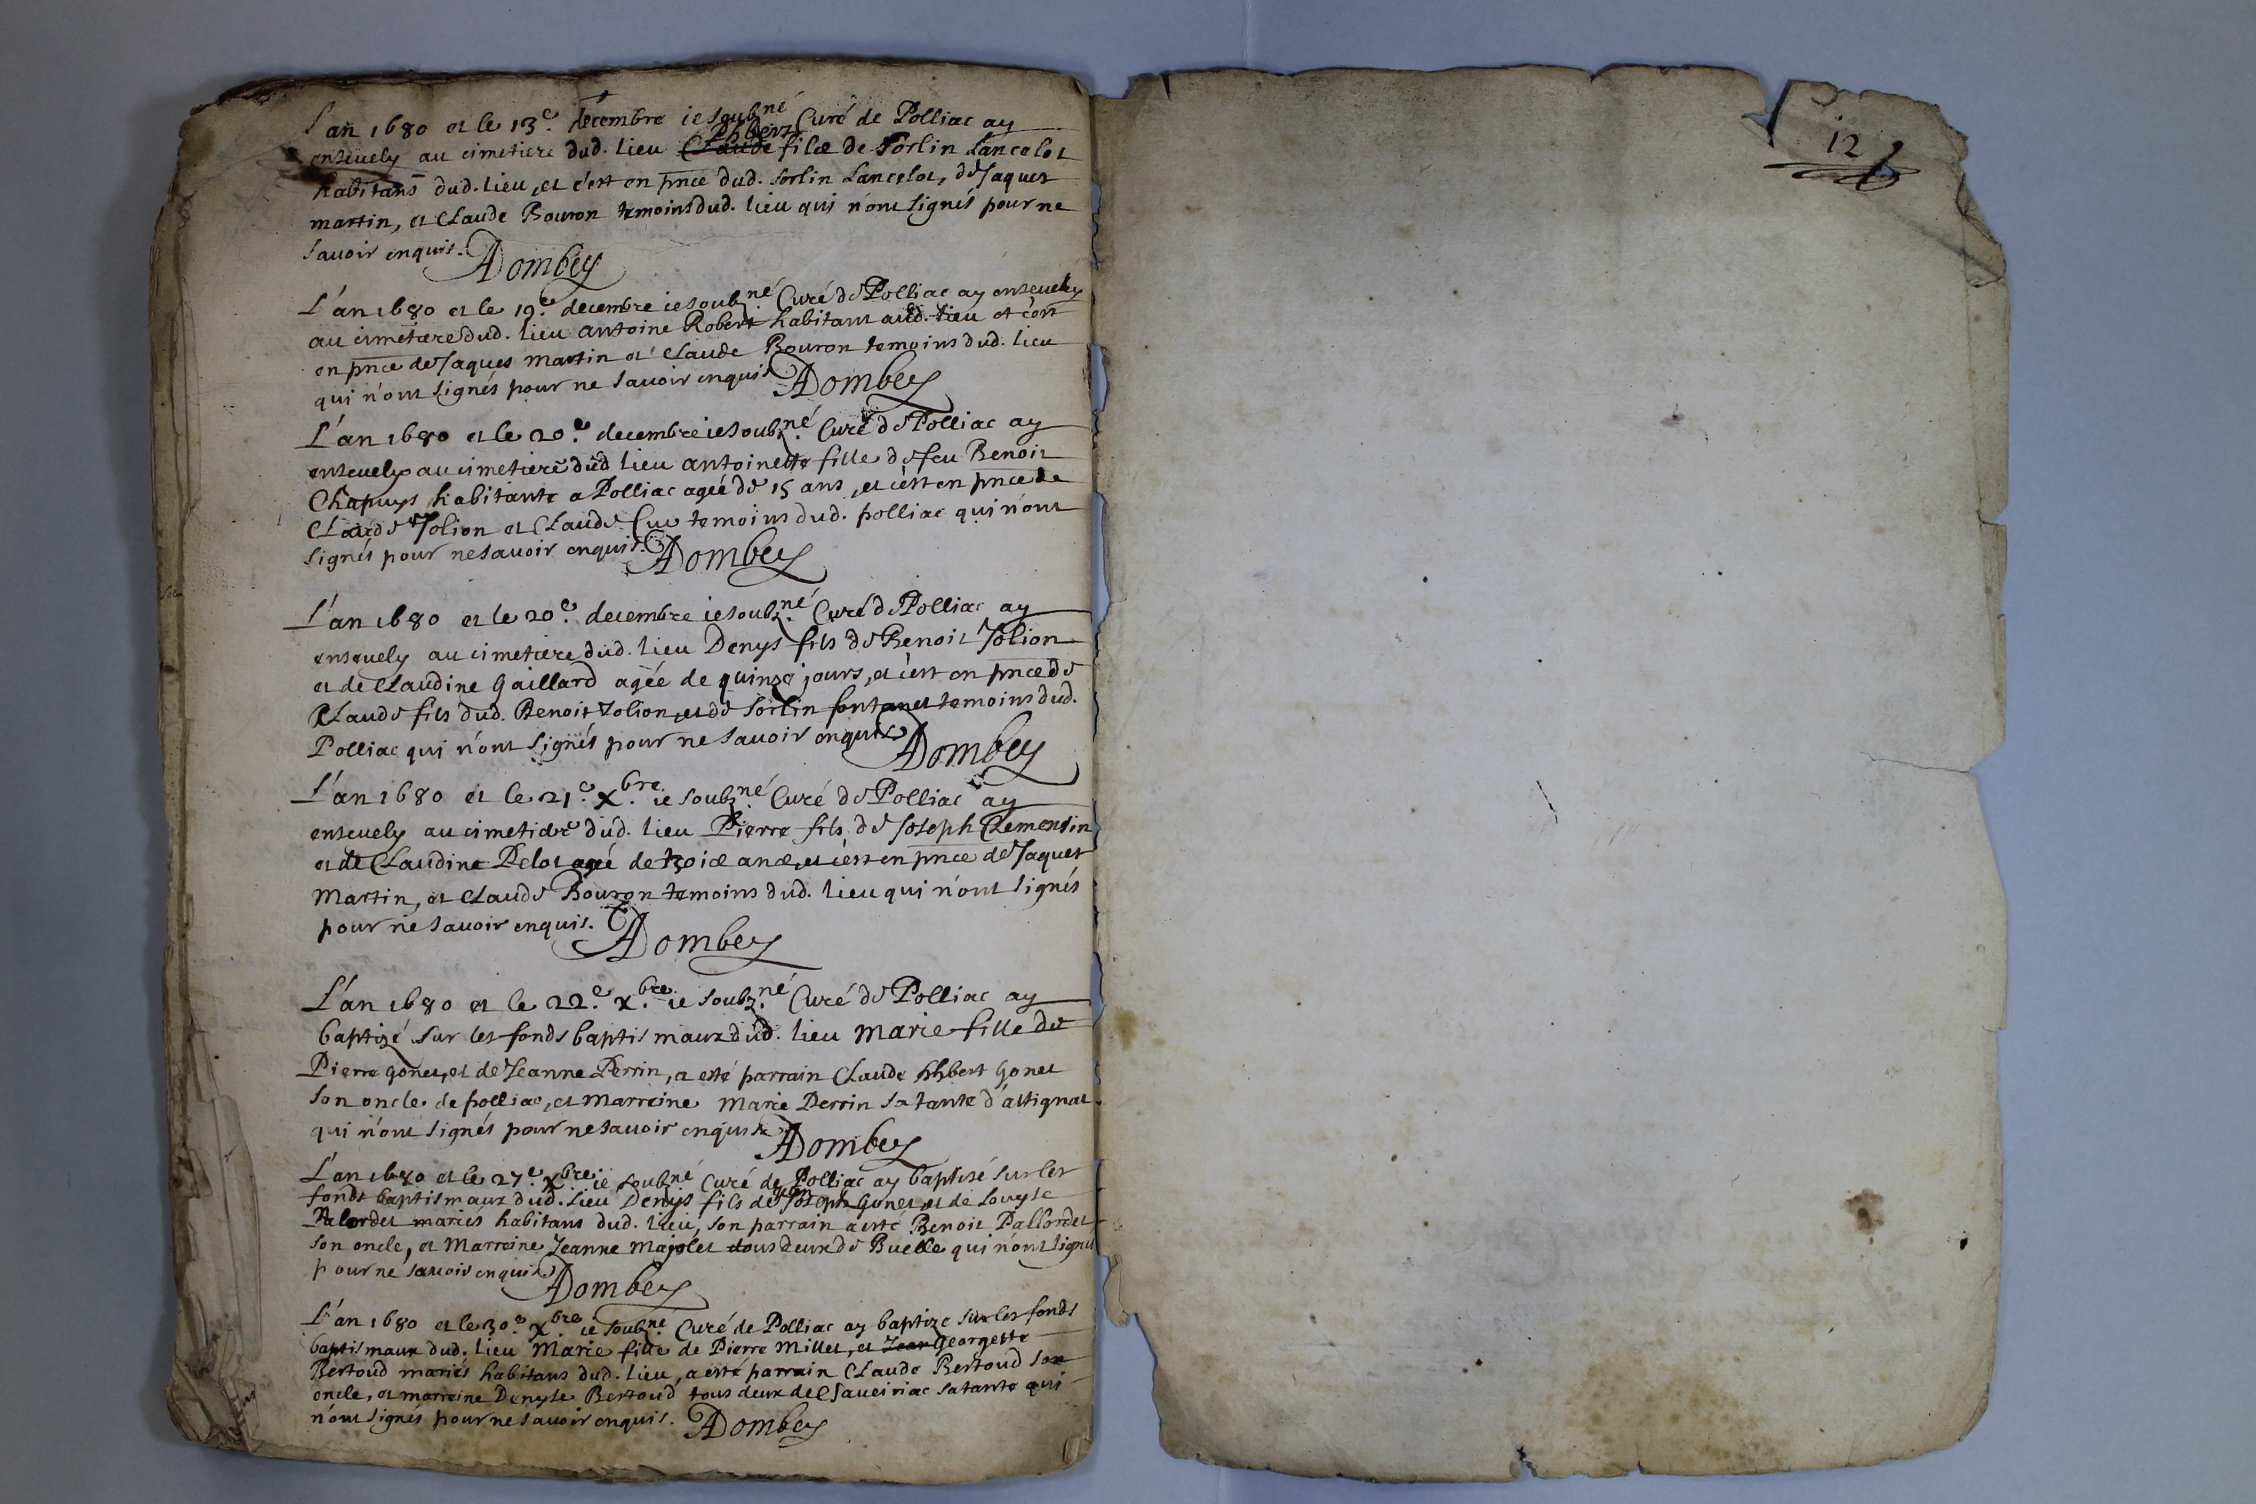 L'an 1680 et le 13e. decembre ie soubz.né Curé de Polliac ay
enseuely au cimetiere dud. lieu Claude Phbert filz de Sorlin Lancelot
habitans dud. lieu, et c'est en pnce dud. Sorlin Lancelot, de Jaques
martin, et Claude Bouron temoins dud. lieu qui n'ont signés pour ne
sauoir enquis. ADombey
L'an 1680 et le 19e. decembre ie soubz.né Curé de Polliac ay enseuely
au cimetiere dud. lieu antoine Robert habitant aud. lieu et c'est
en pnce de Jaques martin et Claude Bouron temoins dud. lieu
qui n'ont signés pour ne sauoir enquis ADombey
L'an 1680 et le 20e. decembre ie soubz.né Curé de Polliac ay
enseuely au cimetiere dud lieu antoinette fille de feu Benoit
Chapuys habitante a Polliac agée de 15 ans, et c'est en pnce de
Claude Jolion et Claude Cue temoins dud. polliac qui n'ont
signés pour ne sauoir enquis. ADombey
L'an 1680 et le 20e. decembre ie soubz.né Curé de Polliac ay
enseuely au cimetiere dud. lieu Denys fils de Benoit Jolion
et de Claudine Gaillard agée de quinze jours, et c'est en pnce de
Claude fils dud. Benoit Jolion, et de Sorlin fontanet temoins dud.
Polliac qui n'ont signés pour ne sauoir enquis ADombey
L'an 1680 et le 21e. xbre. ie soubz.né Curé de Polliac ay
enseuely au cimetiere dud. lieu Pierre fils de Joseph Clemensin
et de Claudine Pelot agé de troiz anz, et c'est en pnce de Jaques
Martin, et Claude Bouron temoins dud. lieu qui n'ont signés
pour ne sauoir enquis. ADombey
L'an 1680 et le 22e. xbre. ie soubz.né Curé de Polliac ay
baptizé sur les fonds baptismaux dud. lieu marie fille de
Pierre gonet, et de Jeanne Perrin, a esté parrain Claude phbert Gonet
son oncle de polliac, et marreine Marie Perrin sa tante d'attignat
qui n'ont signés pour ne sauoir enquis ADombey
L'an 1680 et le 27e. xbre. ie soubz.né Curé de Polliac ay baptisé sur les
fonds baptismaux dud. lieu Denys fils de Joseph Gonet, et de Louyse
Palordet mariés habitans dud. lieu, son parrain a esté Benoit Pallordet
son oncle, et Marreine Jeanne Majolet tous deux de Buelle qui n'ont signés
pour ne sauoir enquis ADombey
L'an 1680 et le 30e. xbre. ie soubz.né Curé de Polliac ay baptizé sur les fonds
baptismaux dud. lieu Marie fille de Pierre Millet, et Jean Georgette
Bertoud mariés habitans dud. lieu, a esté parrain Claude Bertoud son
oncle, et marreine Denyse Bertoud tous deux de sa tante qui
n'ont signés pour ne sauoir enquis. ADombey
12